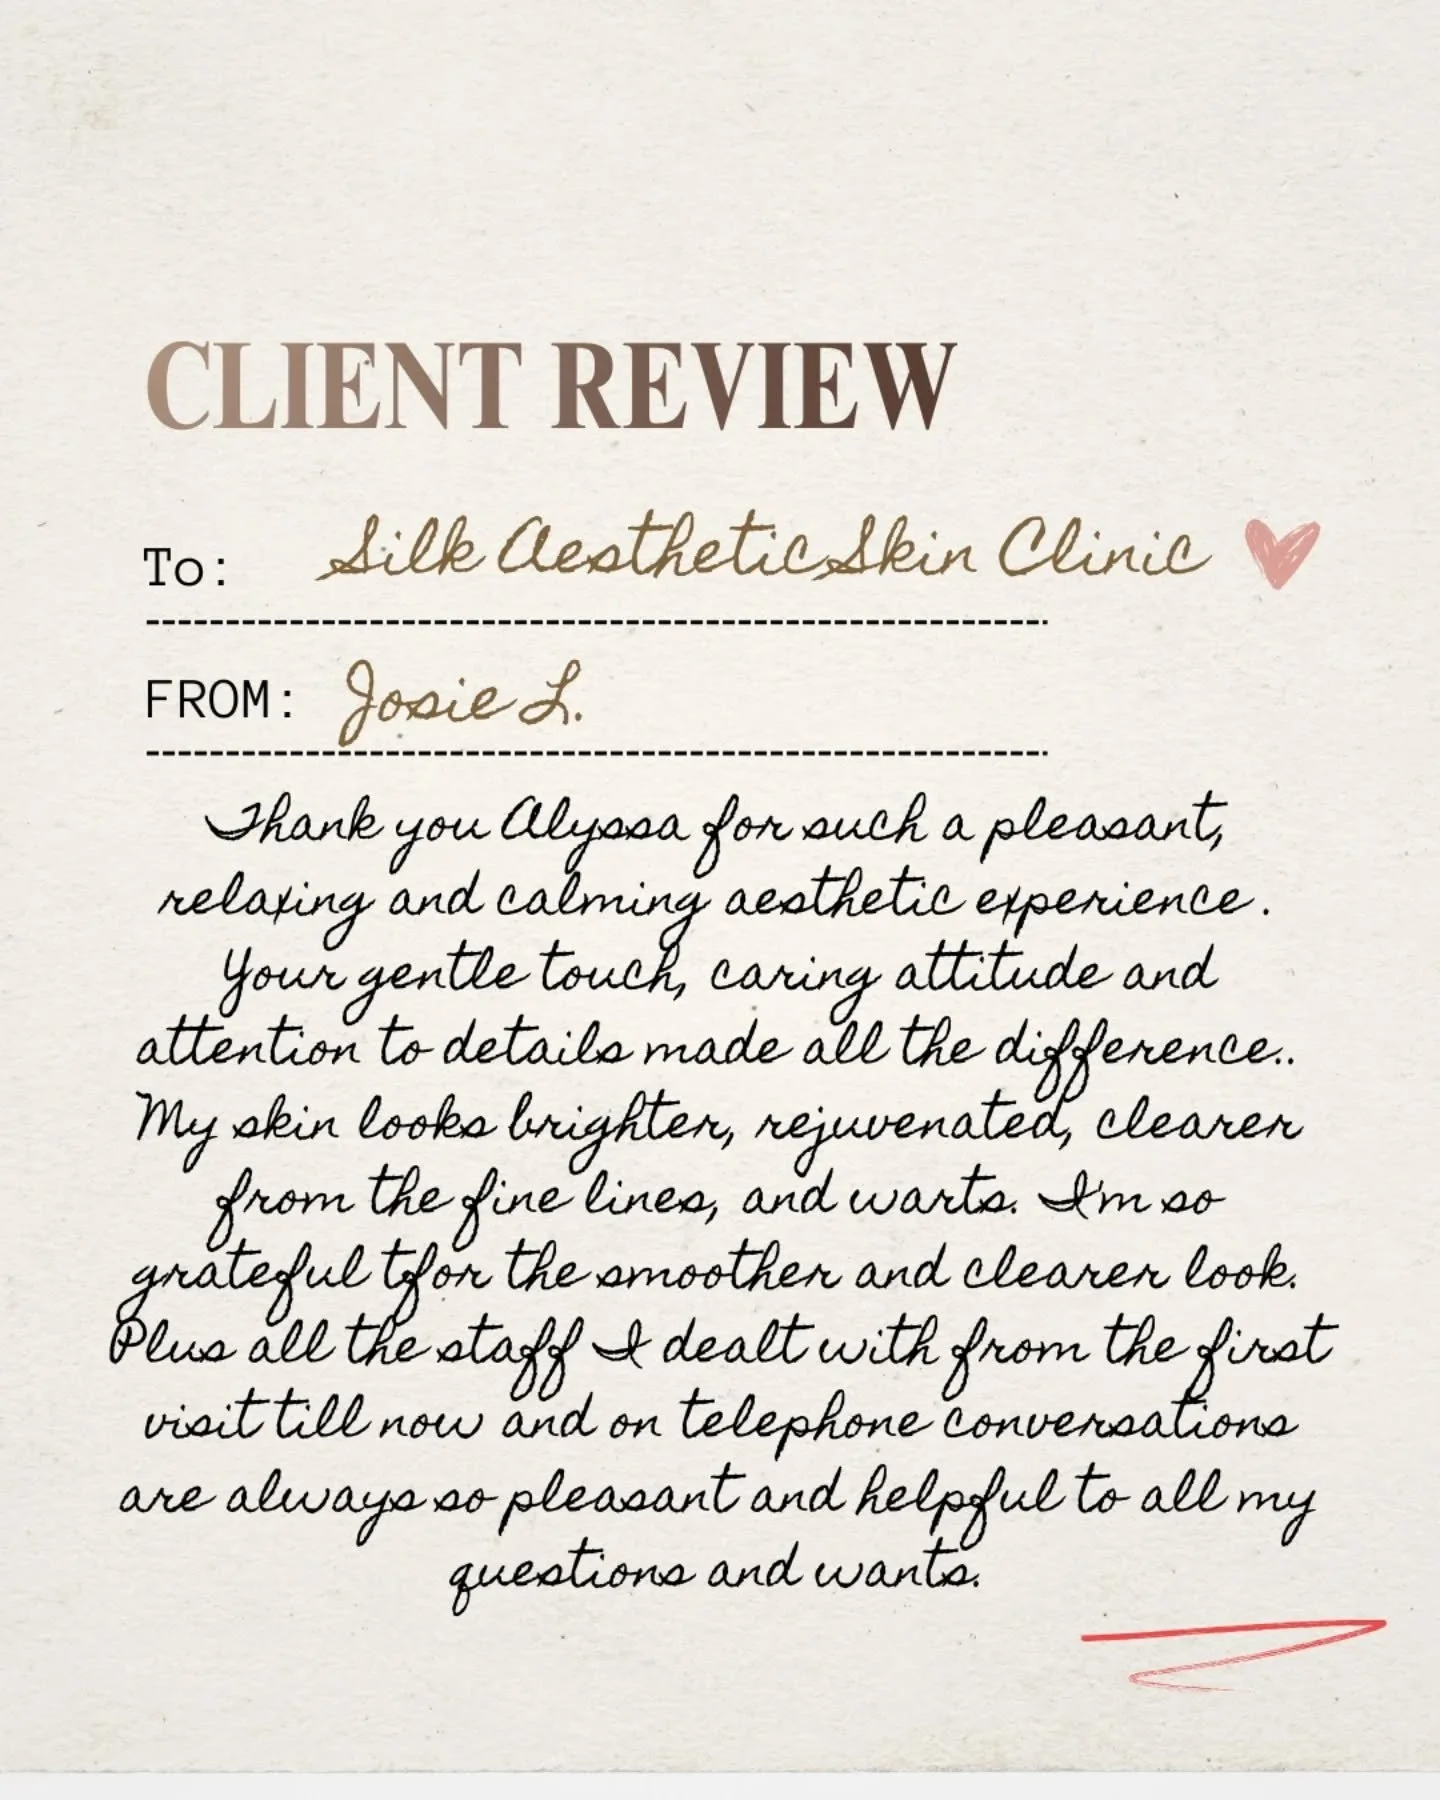 CLIENT REVIEW
To: Silk Aesthetic Skin Clinic
FROM: Josie L.
Thank you Alyssa for such a pleasant,
relaxing and calming aesthetic experience .
Your gentle touch, caring attitude and
attention to details made all the difference..
My skin looks brighter, rejuvenated, clearer
from the fine lines, and warts. I'm so
grateful tfor the smoother and clearer look.
Plus all the staff I dealt with from the first
visit till now and on telephone conversations
are always so pleasant and helpful to all my
questions and wants.